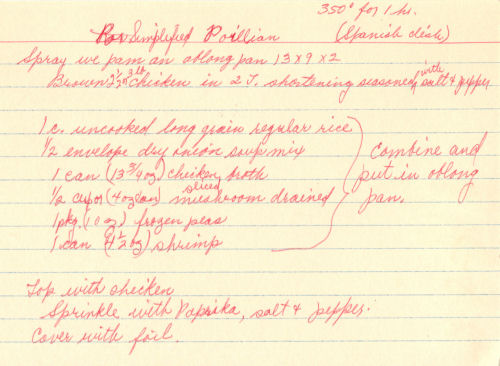 350° for 1 hr.
Simplified Poillian (Spanish dish)
Spray w/ pam an oblong pan 13x9x2
Brown 2½ or 3 lb chicken in 2 T. shortening seasoned with salt & pepper
1 c. uncooked long grain regular rice
½ envelope dry onion soup mix
1 can (13¾ oz) chicken broth
½ cup or (4oz can) sliced mushroom drained
1 pkg. (10 oz) frozen peas
1 can (4½ oz) shrimp
Combine and
put in oblong
pan.
Top with chicken
Sprinkle with Paprika, salt & pepper.
Cover with foil.